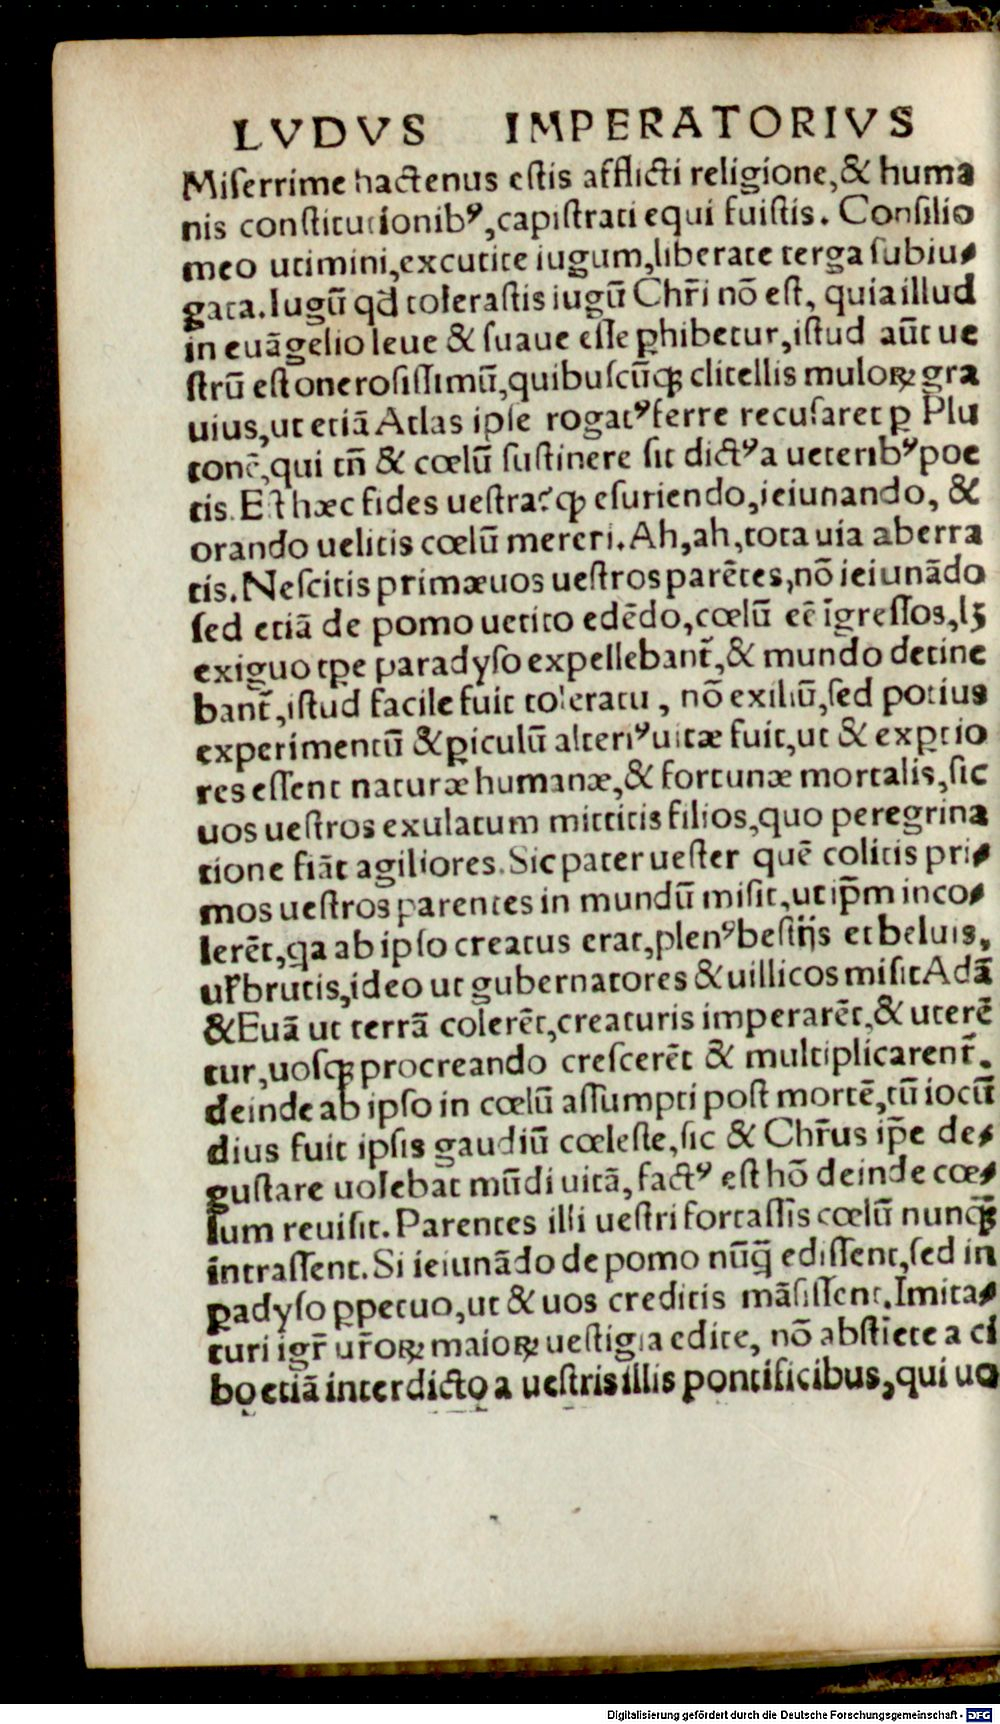 LVDVS IMPERATORIVS
Miſerrime hactenus eſtis afflicti religione,& huma
nis conſtitutionibꝰ,capiſtrati equi fuiſtis. Conſilio
meo utimini,excutite iugum,liberate terga ſubiu⸗
gata.Iugū qđ toleraſtis iugū Chr̄i nō eſt, quia illud
in euāgelio leue & ſuaue eſſe ꝓhibetur,iſtud aūt ue
ſtrū eſt oneroſiſſimū,quibuſcūqꝫ clitellis muloꝝ gra
uius,ut etiā Atlas ipſe rogatꝰ ferre recuſaret ꝓ Plu
tonē,qui tn̄ & cœlū ſuſtinere ſit dictꝰ a ueteribꝰ poe
tis. Eſt hæc fides ueſtra? ꝙ eſuriendo,ieiunando, &
orando uelitis cœlū mereri.Ah,ah,tota uia aberra
tis.Neſcitis primæuos ueſtros parētes,nō ieiunādo
ſed etiā de pomo uetito edēdo,cœlū eē īgreſſos,lꝫ
exiguo tꝑe paradyſo expellebant̄,& mundo detine
bant̄,iſtud facile fuit toleratu , nō exiliū,ſed potius
experimentū & ꝑiculū alteriꝰ uitæ fuit,ut & exꝑtio
res eſſent naturæ humanæ,& fortunæ mortalis,ſic
uos ueſtros exulatum mittitis filios,quo peregrina
tione fiāt agiliores.Sic pater ueſter quē colitis pri⸗
mos ueſtros parentes in mundū miſit,ut ip̄m inco⸗
lerēt,qa ab ipſo creatus erat,plenꝰ beſtijs et beluis,
ur̄ brutis,ideo ut gubernatores & uillicos miſit Adā
& Euā ut terrā colerēt,creaturis imperarēt,& uterē
tur,uoſqꝫ procreando creſcerēt & multiplicarent̄.
deinde ab ipſo in cœlū aſſumpti poſt mortē,tū iocū
dius fuit ipſis gaudiū cœleſte,ſic & Chr̄us ip̄e de⸗
guſtare uolebat mūdi uitā, factꝰ eſt hō deinde cœ⸗
lum reuiſit. Parentes illi ueſtri fortaſſis cœlū nunqꝫ̄
intraſſent. Si ieiunādo de pomo nūq̄ ediſſent,ſed in
padyſo ꝑpetuo,ut & uos creditis māſiſſent.Imita⸗
turi igr̄ ur̄oꝝ maioꝝ ueſtigia edite, nō abſtīete a ci
bo etiā interdicto a ueſtris illis pontificibus,qui uo
Digitalisierung gefördert durch die Deutsche Forschungsgemeinschaft - DFG